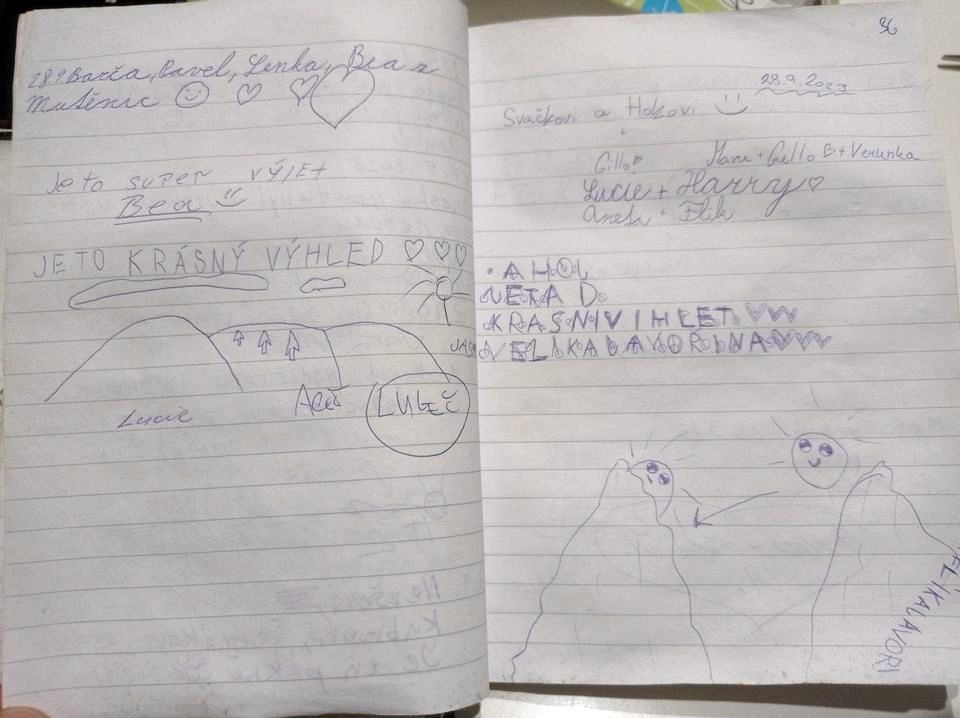 28.9 Barča, Pavel, Lenka, Bea z
Mutěnic
Je to super VÝLET
Bea
JE TO KRÁSNÝ VÝHLED
JASN
Lucie
36
28.9.2023
Svačkovi a Holcovi
Gillo
+ Gillo + Verunka
Lucie + Harry
Aneta + Flik
AHOJ
JE TA D
KRASNIVIHLET
VELIKALAVORINA